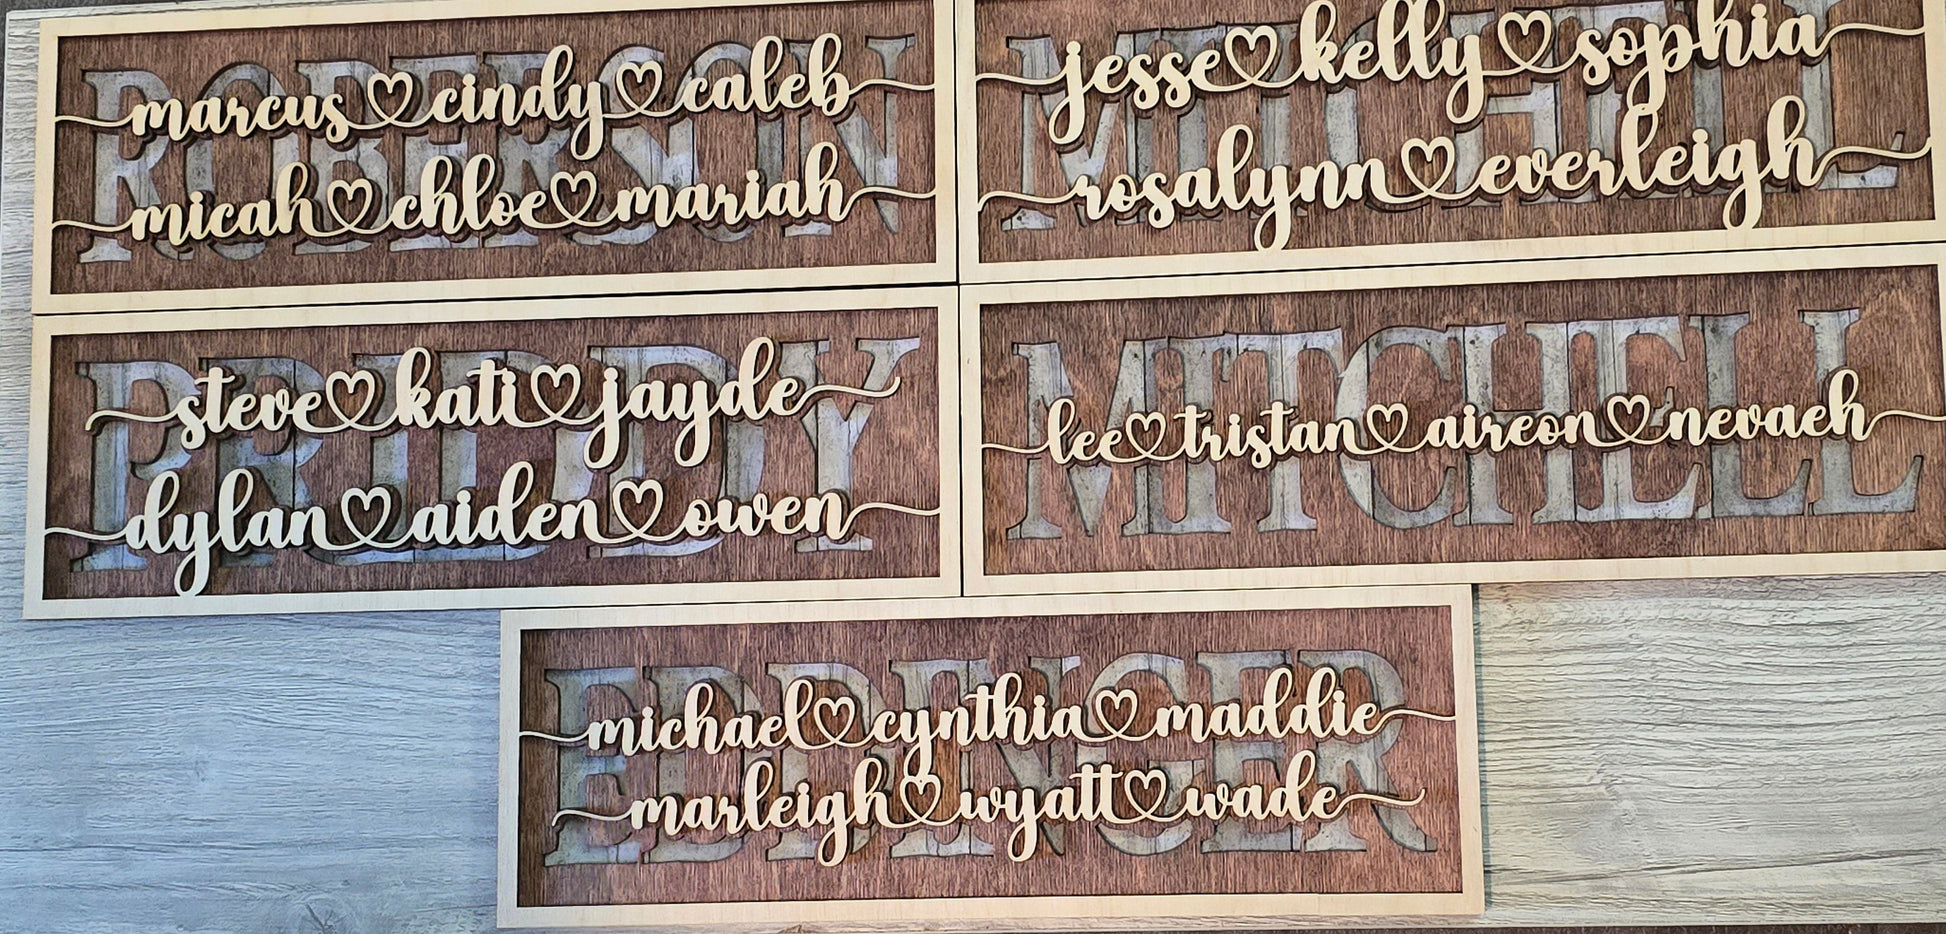 ROBERSON
marcus cindy caleb
micah chloe mariah
MITCHELL
jesse kelly sophia
rosalynn everleigh
PRIDDY
steve kati jayde
dylan aiden owen
MITCHELL
lee tristan aireon nevaeh
EDDINGER
michael cynthia maddie
marleigh wyatt wade